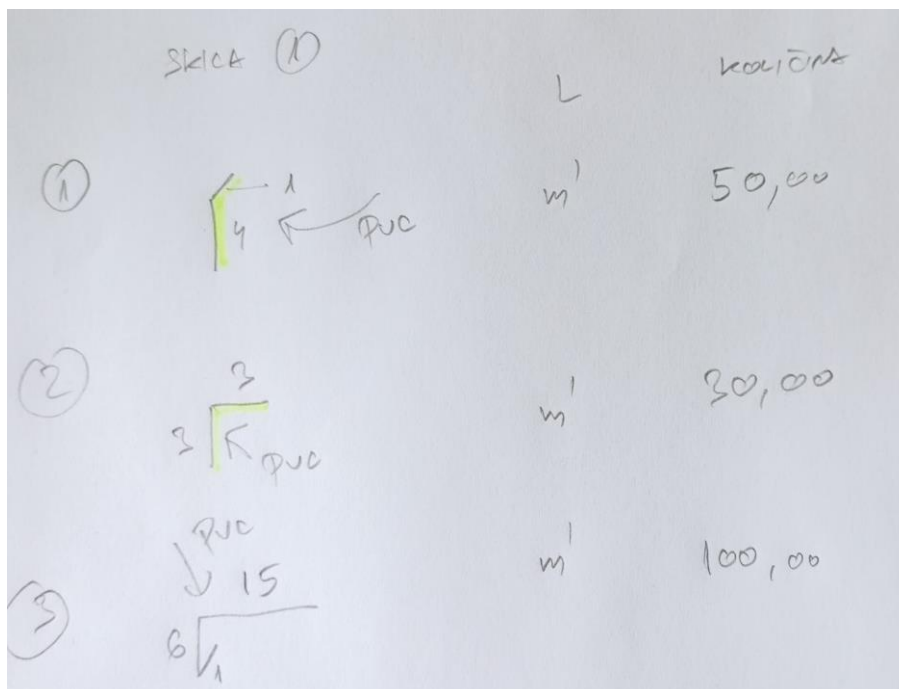 SKICA ①
L
KOLIČINA
①
1
4
PVC
m'
50,00
②
3
3
PVC
m'
30,00
③
PVC
15
6
1
m'
100,00